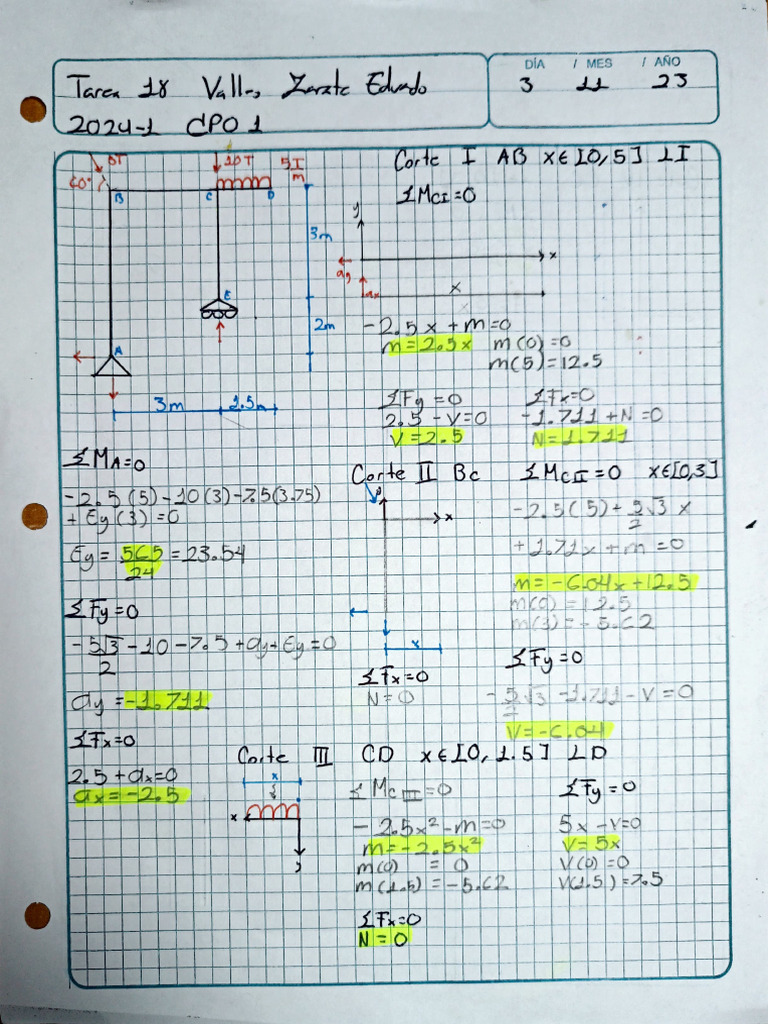 DÍA / MES / AÑO
Tarea 18 Valle, Zarate Eduado 3 11 23
2024-1 CPO 1
5T 10T 5T/m
60°
B C D
3m
E
2m
A
3m 1.5m
Corte I AB x∈[0,5] LI
ΣMCI=0
y
x
ay
ax
x
-2.5x+m=0
m=2.5x m(0)=0
m(5)=12.5
ΣFy=0 ΣFx=0
2.5-V=0 -1.711+N=0
V=2.5 N=1.711
ΣMA=0
-2.5(5)-10(3)-7.5(3.75)
+Ey(3)=0
Ey=565/24=23.54
ΣFy=0
-5√3/2-10-7.5+ay+Ey=0
ay=-1.711
ΣFx=0
2.5+ax=0
ax=-2.5
Corte II Bc ΣMCII=0 x∈[0,3]
x
x
-2.5(5)+5√3/2 x
+1.71x+m=0
m=-6.04x+12.5
m(0)=12.5
m(3)=-5.62
ΣFx=0
N=0
ΣFy=0
-5√3/2-1.711-V=0
V=-6.04
Corte III CD x∈[0,1.5] LD
x
x
ΣMCIII=0
-2.5x²-m=0
m=-2.5x²
m(0)=0
m(1.5)=-5.62
ΣFy=0
5x-V=0
V=5x
V(0)=0
V(1.5)=7.5
ΣFx=0
N=0